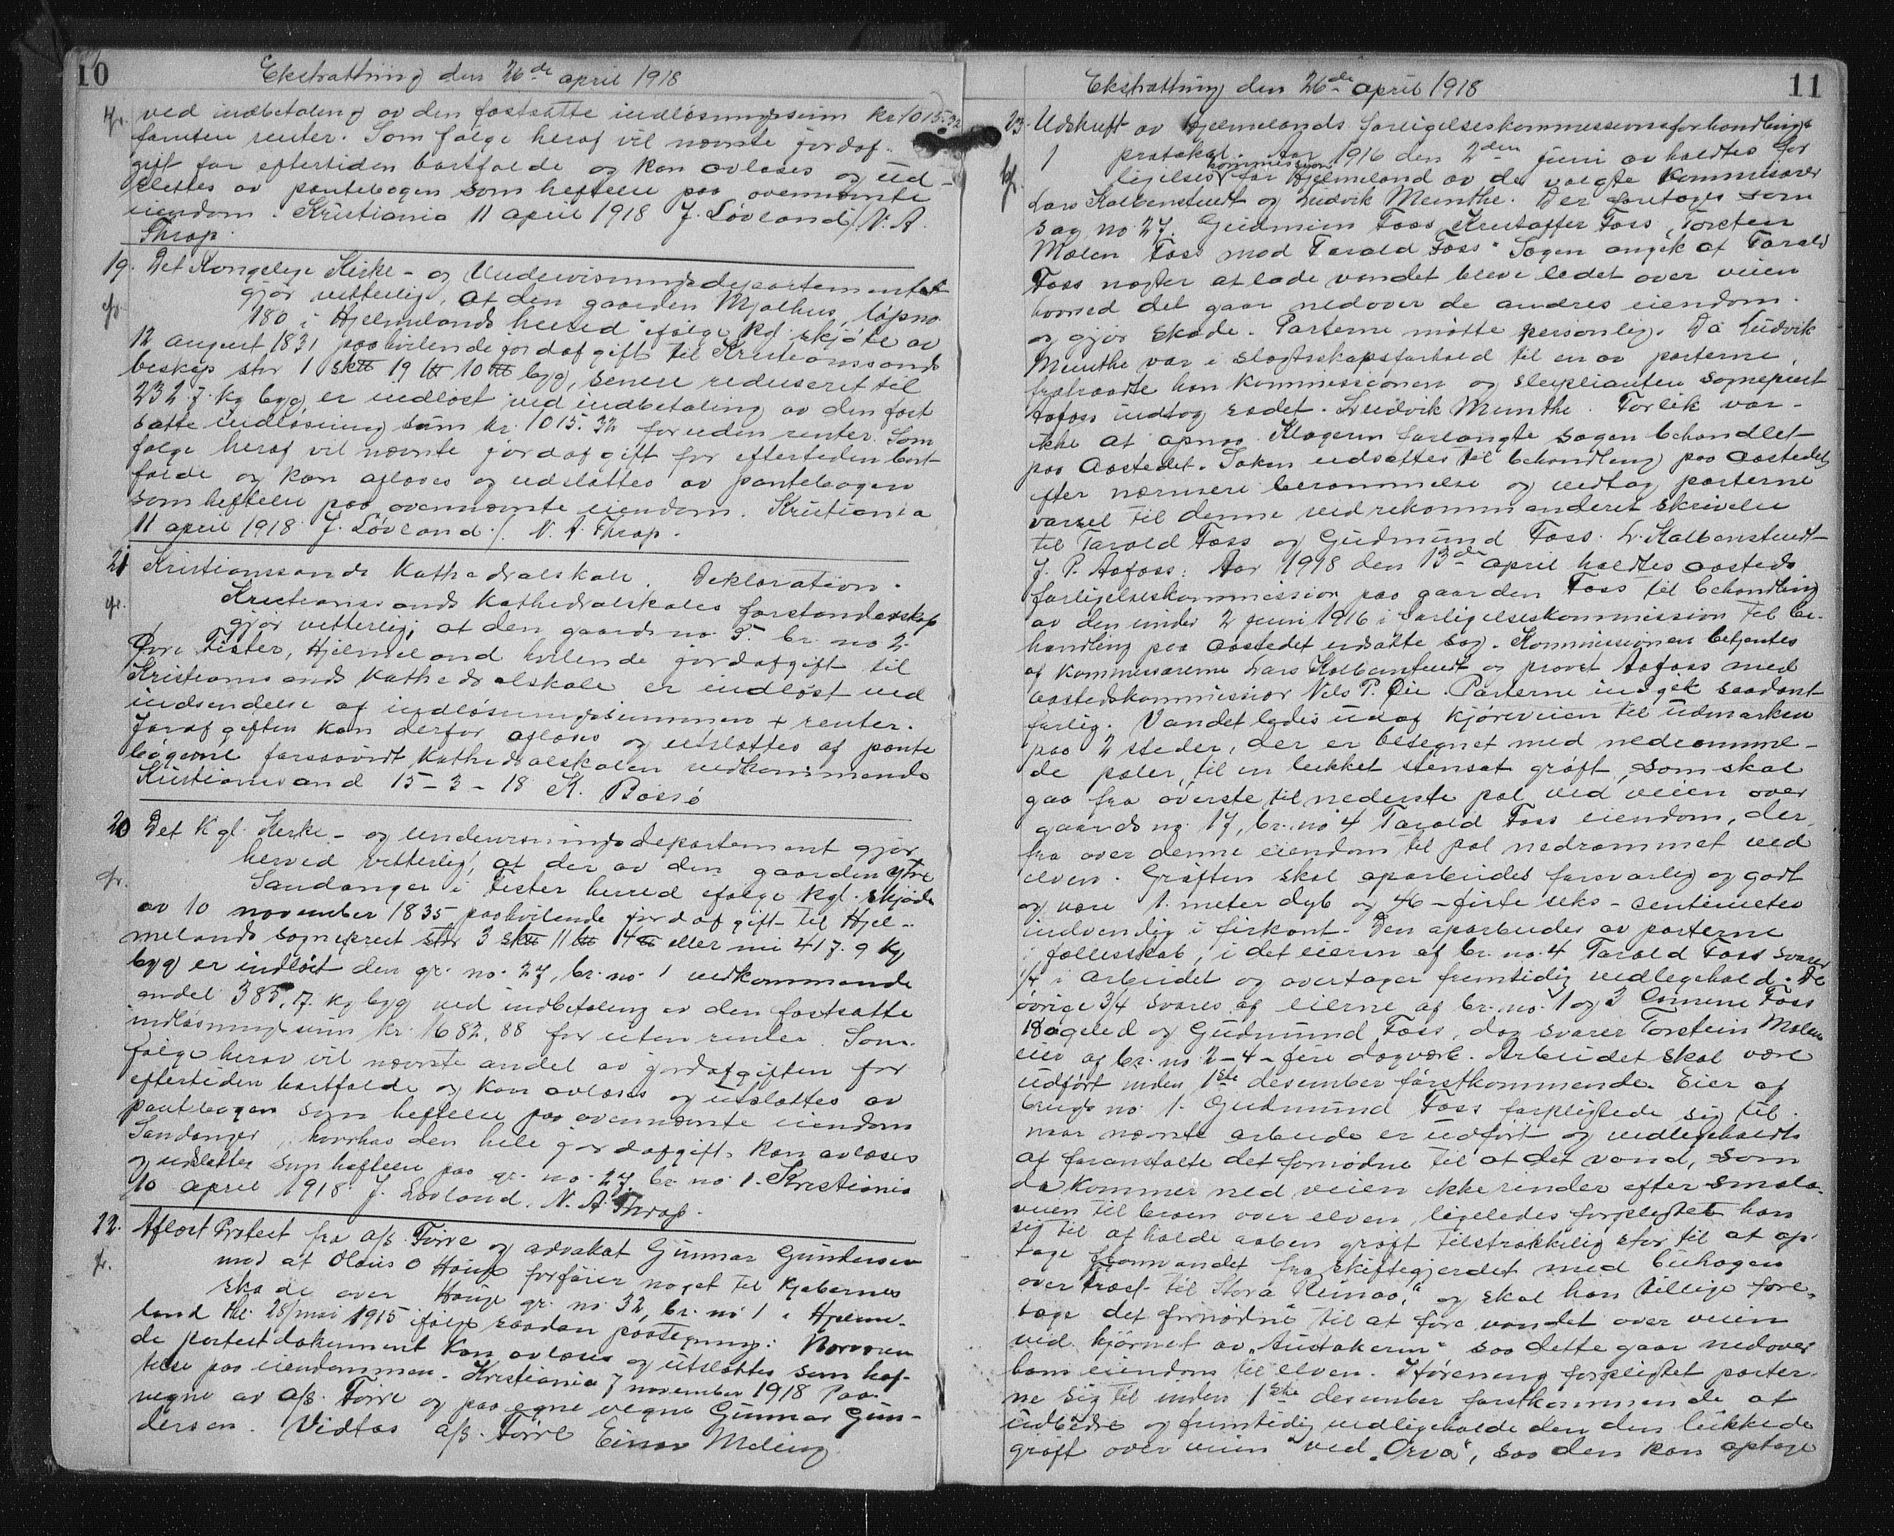 10
Ekstratting den 26de april 1918
ved indbetaling av den fastsatte indløsningssum kr 1015.32
foruten renter. Som følge heraf vil nævnte jordaf-
gift for eftertiden bortfalde og kan avlæses og ud-
slettes av pantebogen som heftelse paa ovennævnte
eiendom. Kristiania 11 april 1918 J. Løvland / N. A.
Thrap.
19. Det Kongelige Kirke- og Undervisningsdepartementet
gjør vitterlig, at den gaarden Mjølhus, løpno
180 i Hjelmelands herred ifølge kgl. skjøte av
12 august 1831 paahvilende jordafgift til Kristianssands
beskip stor 1 sk 19 10 byg, senere reduseret til
232.7 kg byg er indløst ved indbetaling av den fast
satte indløsning sum kr. 1015.32 foruden renter. Som
følge heraf vil nævnte jordafgift for eftertiden bort
falde og kan aflæses og udslettes av pantebogen
som heftelse paa ovennævnte eiendom. Kristiania
11 april 1918 J. Løvland /. N. A. Thrap.
21 Kristianssands Kathedralskole. Deklaration.
Kristianssands Kathedralskoles forstanderskap
gjør vitterlig; at den gaards no. 5 br. no 2
Øvre Fister, Hjelmeland hvilende jordafgift til
Kristianssands Kathedralskole er indløst ved
indsendelse af indløsningssummen + renter.
Jordafgiften kan derfor aflæses og utslettes af pante
bøgerne forsaavidt Kathedralskolen vedkommende
Kristianssand 15-3-18 K.
20 Det Kgl. Kirke- og undervisningsdepartement gjør
herved vitterlig, at der av den gaarden ytre
Sandanger i Fister herred ifølge kgl. skjøde
av 10 november 1835 paahvilende jordafgift til Hjel-
melands sogneprest stor 3 sk 11 14 eller nu 417.9 kg
byg er indløst den gr. no. 27, br. no. 1 vedkommende
andel 385.7 kg byg ved indbetaling av den fastsatte
indløsningssum kr. 1682.88 foruten renter. Som
følge herav vil nævnte andel av jordafgiften for
eftertiden bortfalde og kan avlæses og utslettes av
pantebogen som heftelse paa ovennævnte eiendom
Sandanger, hvorhos den hele jordafgift kan avlæses
og udslettes som heftelse paa gr. no. 27, br. no 1. Kristiania
10 april 1918 J. Løvland. N. A Thrap.
22. Aflæst Protest fra a/s Tørre og advokat Gunnar Gundersen
mod at Olaus O Hauge forføier noget til kjøbernes
skade over Hauge gr. no 32, br. no 1 i Hjelme-
land thl. 28/mai 1915 ifølge saadan paategning: Norværen
de portestdokument kan avlæses og utslettes som hef-
telse paa eiendommen. Kristiania 7 november 1918 Paa
vegne av a/s. Tørre og paa egne vegne Gunnar Gun-
dersen. Vidtas a/s. Tørre Einar Meling.
Ekstratting den 26de april 1918
11
23. Udskrift av Hjelmelands forligelseskommissions forhandlings-
1 protokol. Aar 1916 den 2den juni avholdtes for
ligelses kommission for Hjelmeland av de valgte kommisærer
Lars Kalbenstvedt og Ludvik Munthe. Der foretoges som
sag no 27. Gudmun Foss Kristoffer Foss, Torsten
Molen Foss mod Tarald Foss. Sagen angik at Tarald
Foss negter at lade vandet bleve ledet over veien
hvorved det gaar nedover de andres eiendom.
og gjør skade. Parterne møtte personlig. Da Ludvik
Munthe var i slegtsskapsforhold til en av parterne,
fratraadte han kommissionen og suplianten sogneprest
Aafoss indtog sædet. Ludvik Munthe. Forlik var
ikke at opnaa. Klageren forlangte sagen behandlet
paa aastedet. Saken udsættes til behandling paa aastedet
efter nærmere berammelse og vedtog parterne
varsel til denne ved rekommanderet skrivelse
til Tarald Foss og Gudmund Foss. L. Kalbenstvedt
J. P. Aafoss: Aar 1918 den 13de april holdtes aasteds
forligelseskommission paa gaarden Foss til behandling
av den under 2 juni 1916 i forligelseskommission til be-
handling paa aastedet udsatte sag. Kommissionen betjentes
af kommissærerne Lars Kalbenstvedt og provst Aafoss med
aastedskommissior Nils P. Øie. Parterne indgik saadant
forlig. Vandet ledes ud af kjøreveien til udmarken
paa 2 steder, der er betegnet med nedramme-
de pæler, til en lukket stensat grøft, som skal
gaa fra øverste til nederste pæl ved veien over
gaards no. 17, br. no 4 Tarald Foss eiendom, der
fra over denne eiendom til pæl nedrammet ved
elven. Grøften skal oparbeides forsvarlig og godt
og være 1. meter dyb og 46 - firte seks - centimeter
indvendig i firkant. Den oparbeides av parterne
i fællesskab, i det eieren af br. no. 4 Tarald Foss svarer
1/4 i arbeidet og overtager fremtidig vedligehold. De
øvrige 3/4 svares af eierne af br. no. 1 og 3 Foss
og Gudmund Foss, dog svarer Torstein Molen
eier af br. no 2 - 4 - fire dagverk. Arbeidet skal være
udført inden 1ste desember førstkommende. Eier af
brugs no. 1. Gudmund Foss forpligtede sig til
naar nævnte arbeide er udført og vedligeholdt
af foranstalte det fornødne til at det vand, som
da kommer ned veien ikke render efter smala-
veien til broen over elven, ligeledes forpligtet han
sig til at holde aaben grøft tilstrækkelig stor til at op-
tage fremvandet fra skiftegjerdet med buhagen
over træet til "Stora Runaa," og skal han tillige fore-
tage det fornødne til at føre vandet over veien
ved hjørnet av "Austakerin" saa dette gaar nedover
hans eiendom til elven. I forening forpligtet parter-
ne sig til inden 1ste desember førstkommende at
udbedre og fremtidig vedligeholde den den lukkede
grøft over veien ved "Orva", saa den kan optage